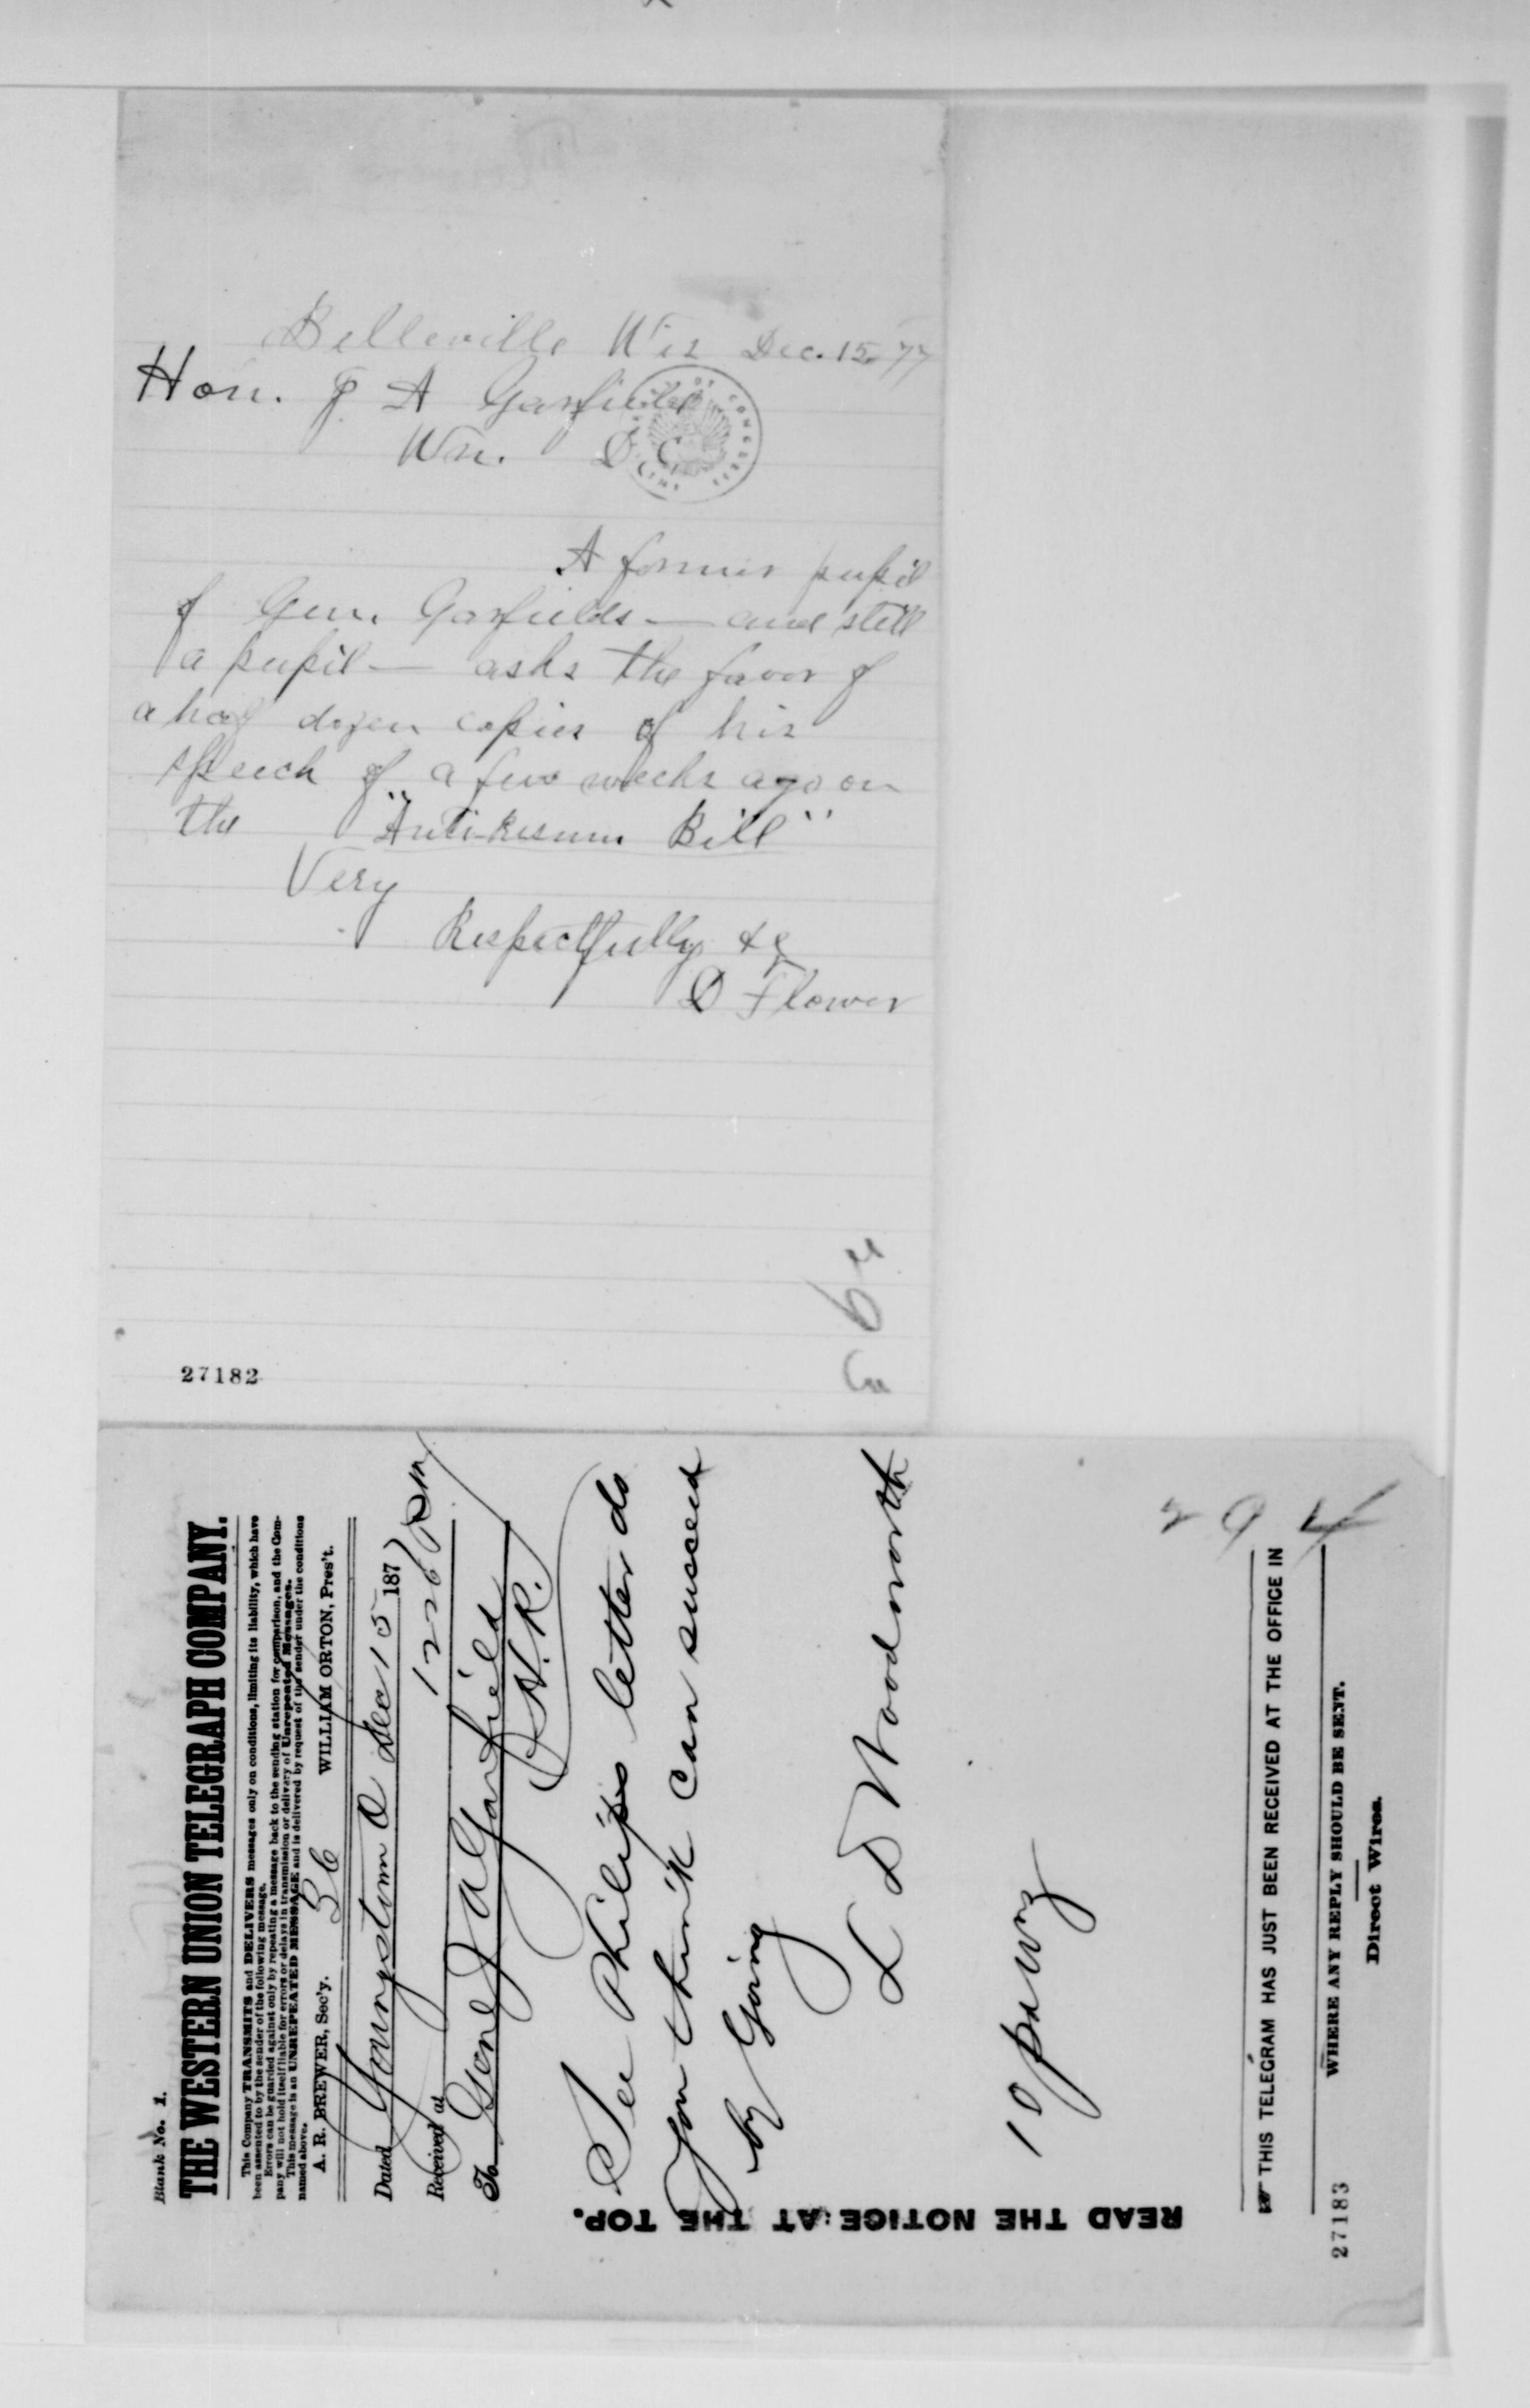 Belleville Wis Dec. 15. 77
Hon. J. A Garfield
Wn. D.C.
A former pupil
of Gen. Garfields — and still
a pupil — asks the favor of
a half dozen copies of his
speech of a few weeks ago on
the "Anti-Resum Bill"
Very
Respectfully &c
D Flower
27182
Blank No. 1.
THE WESTERN UNION TELEGRAPH COMPANY.
This Company TRANSMITS and DELIVERS messages only on conditions, limiting its liability, which have
been assented to by the sender of the following message.
Errors can be guarded against only by repeating a message back to the sending station for comparison, and the Com-
pany will not hold itself liable for errors or delays in transmission or delivery of Unrepeated Messages.
This message is an UNREPEATED MESSAGE and is delivered by request of the sender under the conditions
named above.
A. R. BREWER, Sec'y. WILLIAM ORTON, Pres't.
Dated Youngstown O Dec 15 1877
Received at 1226 Pm
To Genl J A Garfield
H.R.
See Philips letter do
you think can succeed
by Going
L D Woodworth
READ THE NOTICE AT THE TOP.
294
THIS TELEGRAM HAS JUST BEEN RECEIVED AT THE OFFICE IN
WHERE ANY REPLY SHOULD BE SENT.
Direct Wires.
27183